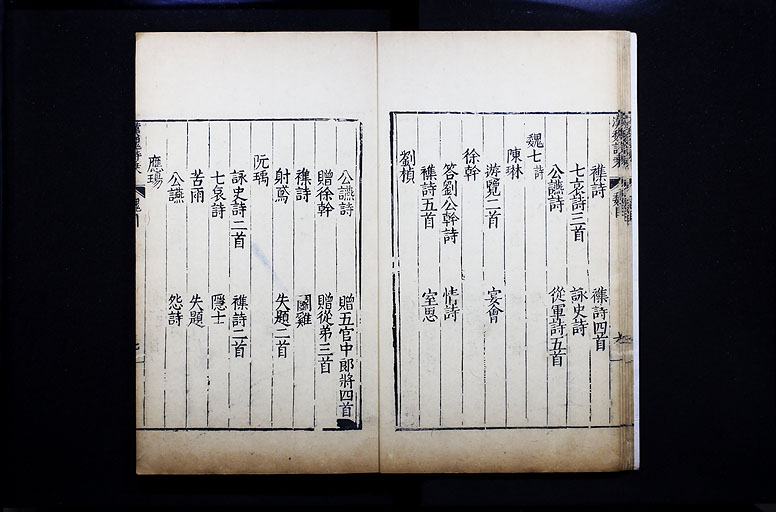 襍詩 襍詩四首
七哀詩三首 詠史詩
公讌詩 從軍詩五首
魏七詩
陳琳
遊覽二首 宴會
徐幹
答劉公幹詩 情詩
襍詩五首 室思
劉楨
公讌詩 贈五官中郎將四首
贈徐幹 贈從弟三首
襍詩 鬭雞
射鳶 失題二首
阮瑀
詠史詩二首 襍詩二首
七哀詩 隱士
苦雨 失題
公讌 怨詩
應瑒